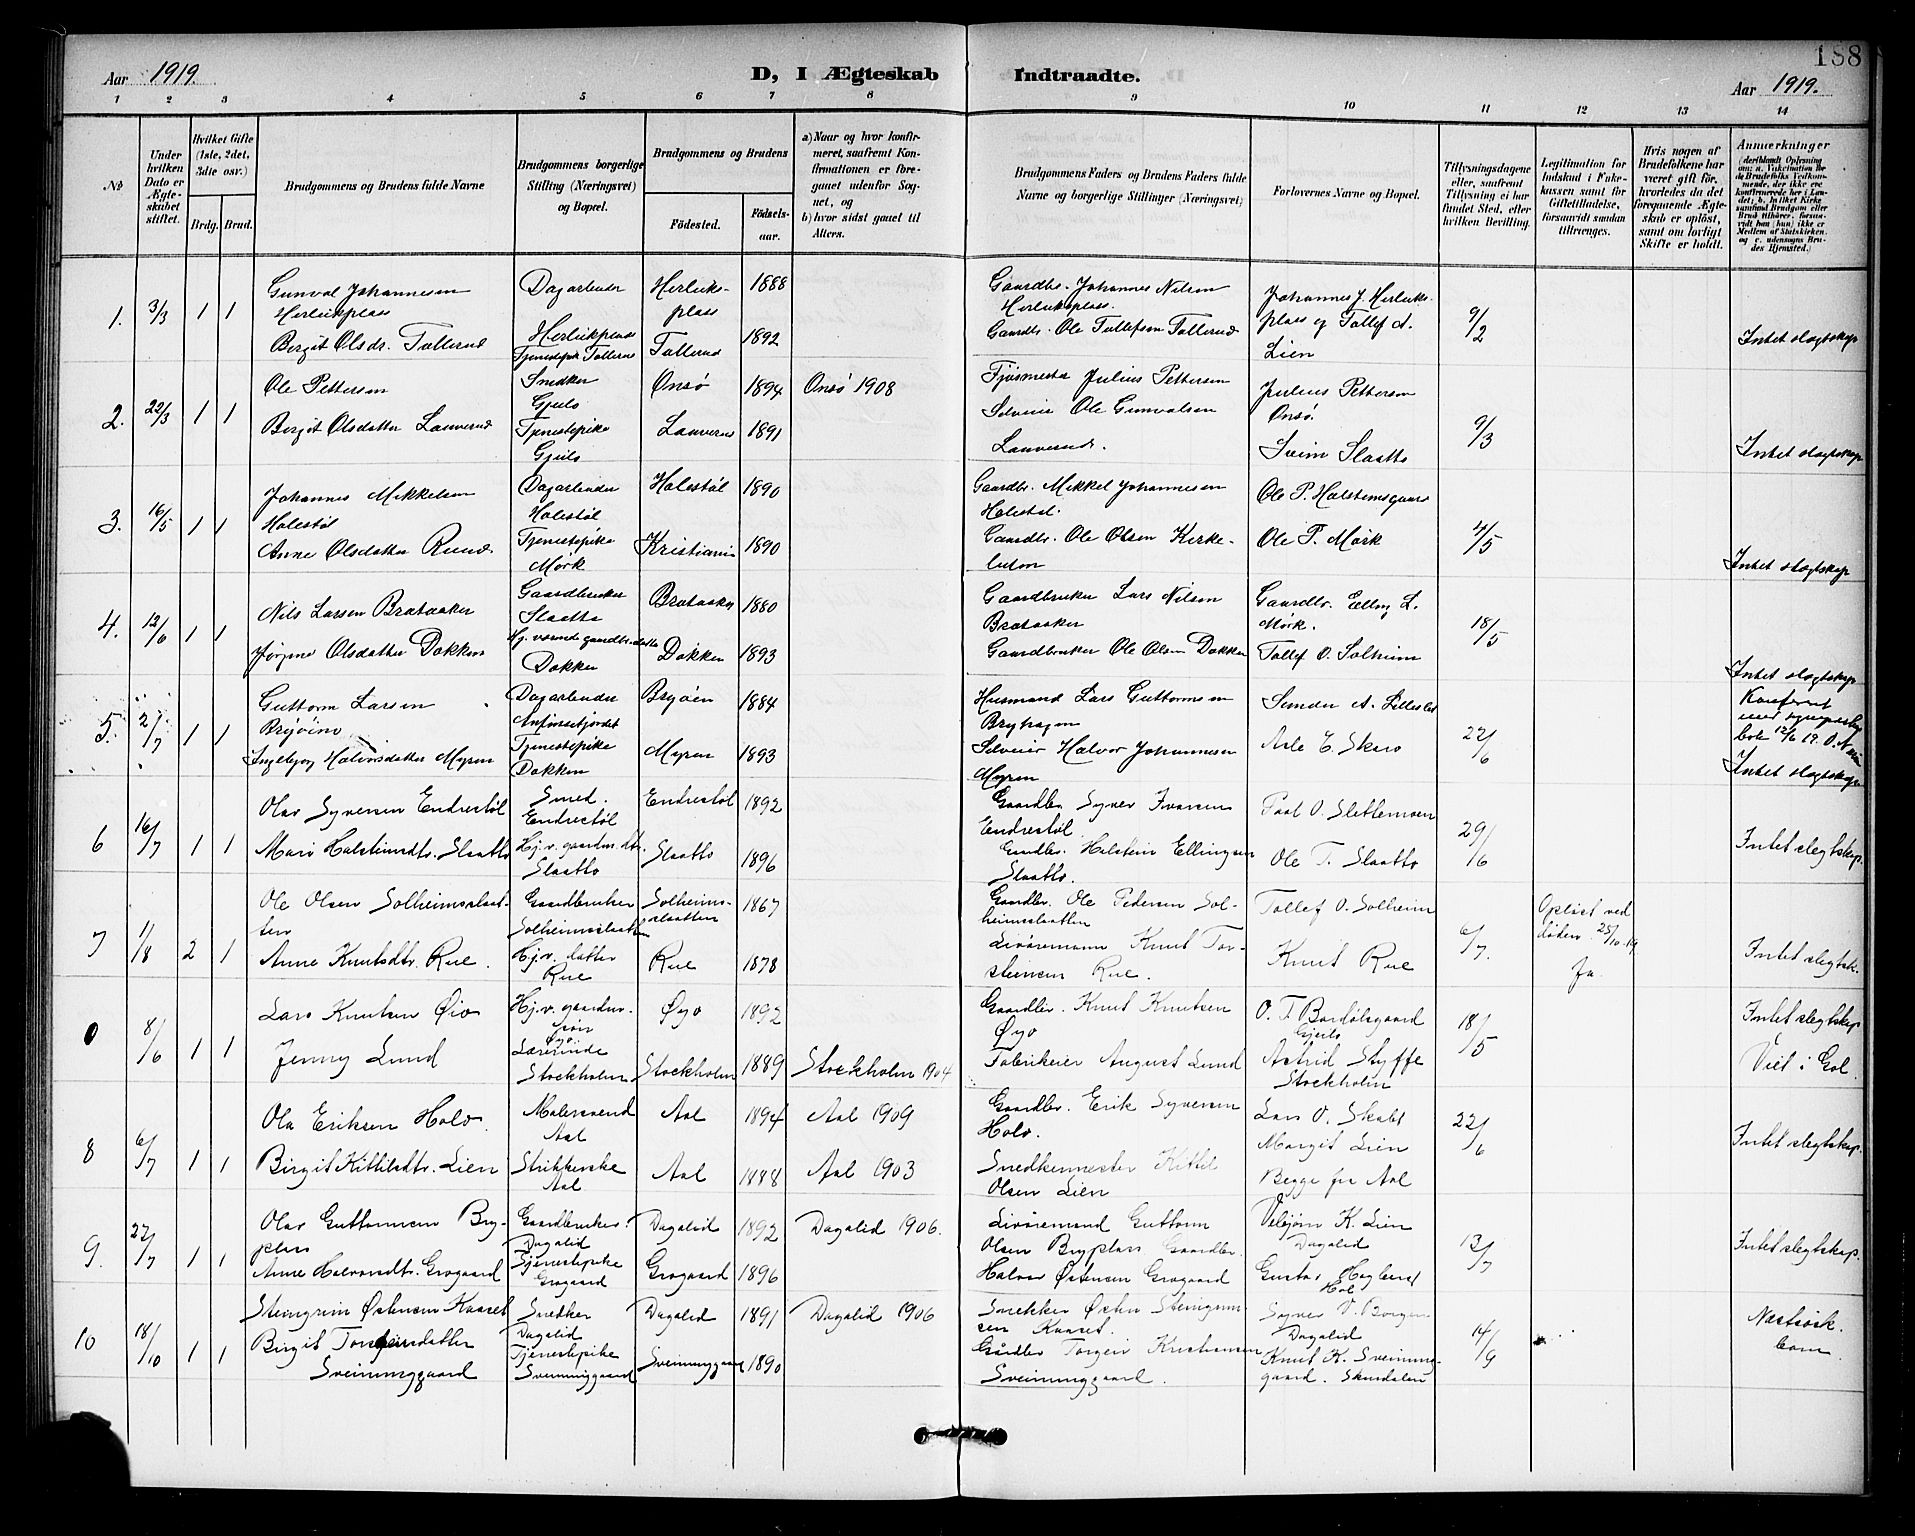 188
Aar 1919.
D, I Ægteskab Indtraadte.
Aar 1919.
1 2 3 4 5 6 7 8 9 10 11 12 13 14
No
Under hvilken Dato er Ægteskabet stiftet.
Hvilket Gifte (1ste, 2det, 3die osv.)
Brdg. Brud.
Brudgommens og Brudens fulde Navne
Brudgommens borgerlige Stilling (Næringsvei) og Bopæl.
Brudgommens og Brudens
Fødested.
Fødselsaar.
a) Naar og hvor konfirmeret, saafremt Konfirmationen er foregaaet udenfor Sognet, og
b) hvor sidst gaaet til Alters.
Brudgommens Faders og Brudens Faders fulde Navne og borgerlige Stillinger (Næringsvei)
Forlovernes Navne og Bopæl.
Tillysningsdagene eller, saafremt Tillysning ei har fundet Sted, efter hvilken Bevilling.
Legitimation for Indskud i Enkekassen samt for Giftetilladelse, forsaavidt saadan tiltrænges.
Hvis nogen af Brudefolkene har været gift før, hvorledes da det foregaaende Ægteskab er opløst, samt om lovligt Skifte er holdt.
Anmærkninger
1. 3/3 1 1
Gunval Johannesen Herleiksplass
Dagarbeider Herleikplass
Herleiksplass 1888
Gaardbr. Johannes Nilsen Herleiksplass.
Johannes J. Herleiksplass og Tollef A. Lien
9/2
Birgit Olsdr. Tollerud
Tjenestepik Tollerud
Tollerud 1892
Gaardbr. Ole Tollefsen Tollerud
Intet slegtskap
2. 22/3 1 1
Ole Pettersen
Snedker Gjeilo
Onsø 1894
Onsø 1908
Fjøsmester Julius Pettersen
Julius Pettersen Onsø.
9/3
Birgit Olsdatter Lauverud
Tjenestepike Gjeilo
Lauverud 1891
Selveier Ole Gunvalsen Lauverud.
Svein Slaatto
Intet slegtskap
3. 16/5 1 1
Johannes Mikkelsen Holestøl
Dagarbeider Holestøl
Holestøl 1890
Gaardbr. Mikkel Johannesen Holestøl.
Ole P. Halsteinsgaard
4/5
Anne Olsdatter Ruud
Tjenestepike Mørk
Kristiania 1890
Gaardbr. Ole Olsen
Ole P. Mørk
Intet slegtskap
4. 12/6 1 1
Nils Larsen Brataaker
Gaardbruker Slaatto
Brataaker 1880
Gaardbruker Lars Nilsen Brataaker
Gaardbr. Elling L. Mørk.
18/5
Jørgine Olsdatter Dokken
Hj. værende gaardbr. datter Dokken
Dokken 1893
Gaardbruker Ole Olsen Dokken
Tollef O. Solheim
Intet slegtskap
5. 2/7 1 1
Guttorm Larsen Bryøien
Dagarbeider
Bryøen 1884
Husmand Lars Guttormsen Bryhagen
Simen A. Lilleslet
22/6
Ingeborg Halvorsdatter Myren
Tjenestepike Dokken
Myren 1893
Selveier Halvor Johannesen Myren
Asle E. Skaro
Konferert
12/6 19.
Intet slegtskap
6 16/7 1 1
Olav Syversen Endrestøl
Smed. Endrestøl
Endrestøl 1892
Gaardbr. Syver Ivarsen Endrestøl
Paal O. Slettemoen
29/6
Mari Halsteinsdtr. Slaatto
Hj. v. gaardm. dtr. Slaatto
Slaatto 1896
Gaardbr. Halstein Ellingsen Slaatto.
Ole T. Slaatto
Intet slegtskap.
7 1/8 2 1
Ole Olsen Solheimsslaatten
Gaardbruker Solheimsslaatten
Solheimsslaatten 1867
Gaardbr. Ole Pedersen Solheimsslaatten
Tollef O. Solheim
6/7.
Opløst ved døden 25/10-19
Ja.
Anne Knutsdtr. Rue.
Hj. v. datter Rue
Rue 1878
Livøremann Knut Torsteinsen Rue.
Knut Rue
Intet slegtsk.
0 8/6 1 1
Lars Knutsen Øio
Hj. v. gaardm. søn Øyo
Øyo 1892
Gaardbr. Knut Knutsen Øyo
O. T. Bardølsgaard Gjeilo
18/5
Intet slegtskap
Jenny Lund
Lærerinde Stockholm
Stockholm 1889
Stockholm 1904
Fabrikeier August Lund
Astrid Styffe Stockholm
Viet i Gol.
8 6/7 1 1
Ola Eriksen Holo
Malersvend Aal
Aal 1894
Aal 1909
Gaardbr. Erik Syversen Holo.
Lars O. Skalet
22/6
Birgit Kittilsdtr. Lien
Strikkerske Aal
Aal 1888
Aal 1903
Snedkermester Kittil Olsen Lien
Margit Lien
Begge fra Aal
Intet slegtskap.
9. 27/7 1 1
Olav Guttormsen Bryplass
Gaardbruker. Dagalid
Dagalid 1892
Dagalid 1906.
Livøremand Guttorm Olsen Bryplass
Velgjøm K. Lien Dagalid
13/7
Anne Halvorsdtr. Grøgaard
Tjenestepike Grøgaard
Grøgaard 1896
Gaardbr. Halvor Østensen Grøgaard
Gustav Høglund Hol
Intet slegtskap.
10 18/10 1 1
Steingrim Østensen Kaaset
Snedker Dagalid
Dagalid 1891
Dagalid 1906
Snekker Østen Steingrimsen Kaaset.
Syver V. Borgen Dagalid
14/9
Birgit Torgeirsdatter Sveinunggaard
Tjenestepike Sveinunggaard
Sveinunggaard 1890
Gårdbr Torgeir Kristiansen Sveinunggaard.
Knut K. Sveinunggaard. Skurdalen
Næstsøskbarn